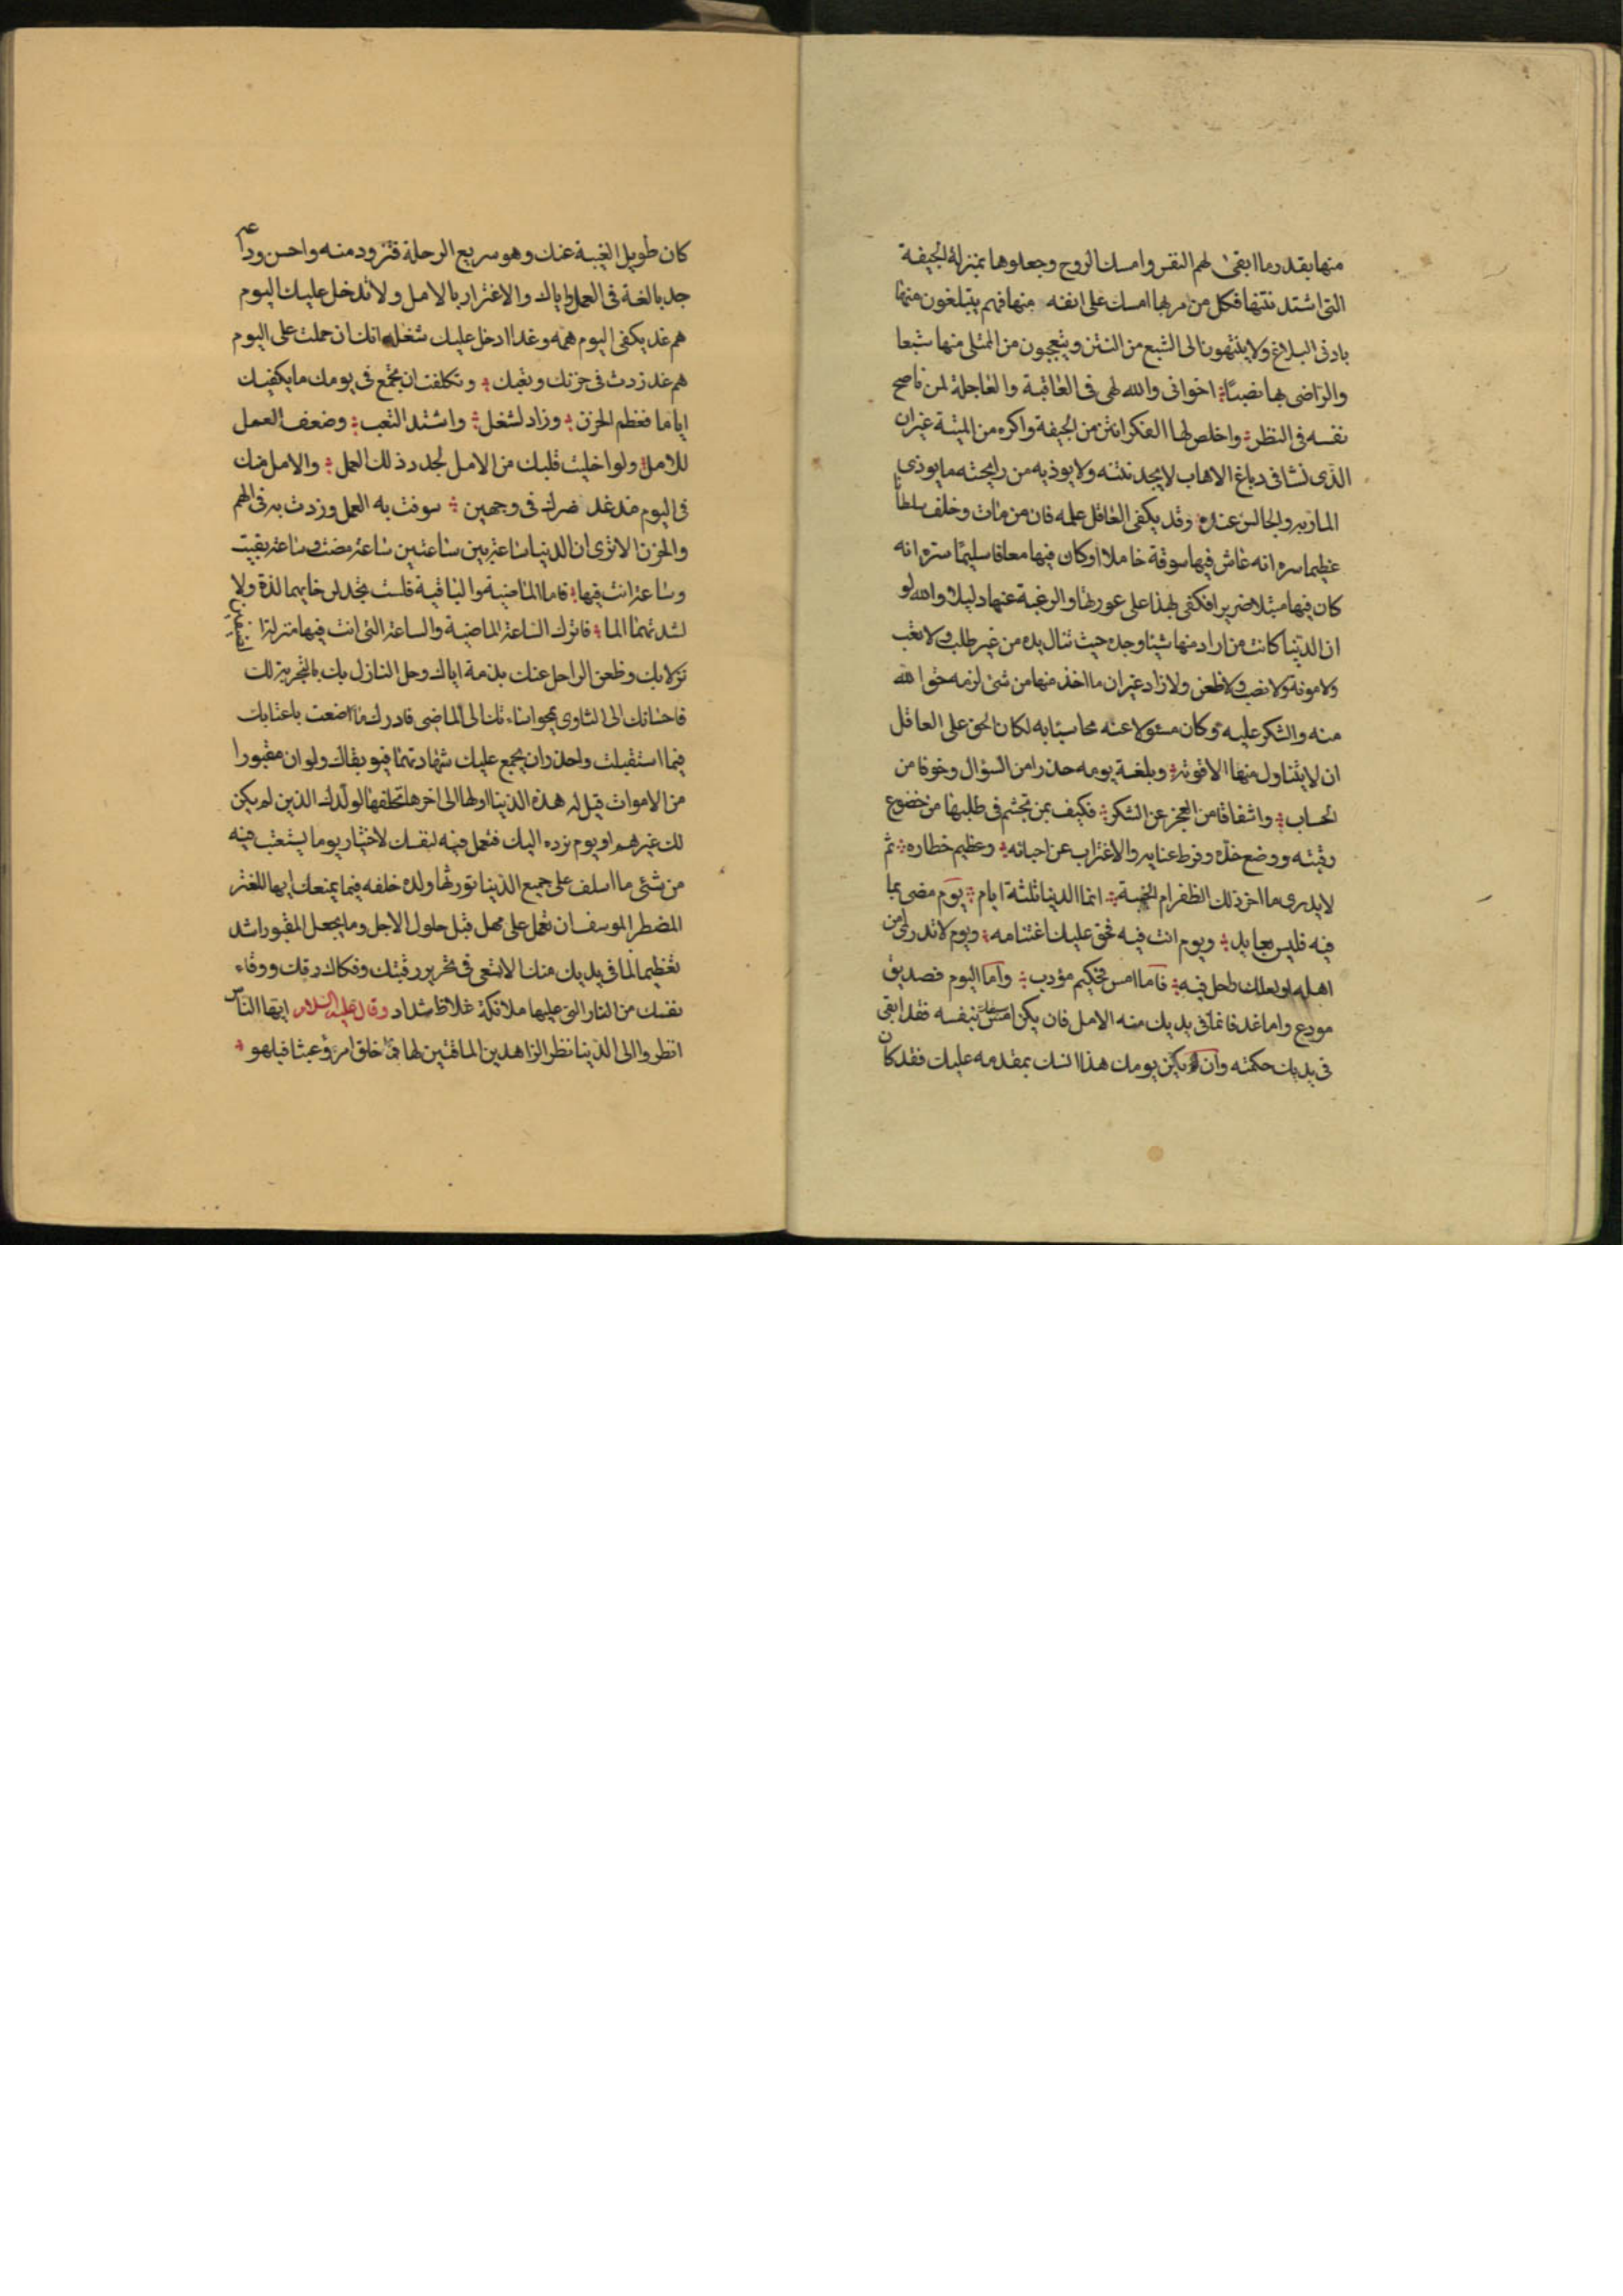 منها بقدر ما ابقى لهم النفس وامسك الروح وجعلوها بمنزلة الجيفة
التى اشتد نتنها فكل من مر بها امسك على انفه منها فهم يتبلغون منها
بادنى البلاغ ولا ينتهون الى الشبع من النتن ويتعجبون من الممتلى منها شبعا
والراضى بها نصيبا اخوانى والله لهى فى العاقبة والعاجلة لمن ناصح
نفسه فى النظر واخلص لها الفكر انتن من الجيفة واكره من الميتة غير ان
الذى نشا فى دباغ الاهاب لا يجد نتنه ولا يوذيه من رايحته ما يوذى
المار به والجالس عنده وقد يكفى العاقل علمه فان من مات وخلف سلطانا
عظيما سره انه عاش فيها سوقة خاملا او كان فيها معافا سليما سره انه
كان فيها مبتلا ضريرا فكفى بهذا على عورتها والرغبة عنها دليلا والله لو
ان الدنيا كانت من اراد منها شيئا وجده حيث تنال يده من غير طلب ولا تعب
ولا مونة ولا نصب ولا ظعن ولا زاد غير ان ما اخذ منها من شئ لزمه حق الله
منه والشكر عليه وكان مسئولا عنه محاسبا به لكان الحق على العاقل
ان لا يتناول منها الا قوته وبلغة يومه حذرا من السؤال وخوفا من
الحساب واشفاقا من العجز عن الشكر فكيف بمن تجشم فى طلبها من خضوع
رقبته ووضع خده وفرط عنايه والاغتراب عن احبائه وعظيم خطاره ثم
لا يدرى ما اخر ذلك الظفر ام الخيبة انما الدنيا ثلثة ايام يوم مضى بما
فيه فليس بعايد ويوم انت فيه فحق عليك اغتنامه ويوم لا تدرى من
اهله ولعلك راحل فيه فاما امس فحكيم مؤدب واما اليوم فصديق
مودع واما غد فانما فى يديك منه الامل فان يكن امس سبقك بنفسه فقد ابقى
فى يديك حكمته وان يكن يومك هذا انسك بمقدمه عليك فقد كان
كان طويل الغيبة عنك وهو سريع الرحلة فتزود منه واحسن وداعه
جد بالغة فى العمل واياك والاغترار بالامل ولا تدخل عليك اليوم
هم غد يكفى اليوم همه وغدا ادخل عليك شغله انك ان حملت على اليوم
هم غد زدت فى حزنك وتعبك وتكلفت ان تجمع فى يومك ما يكفيك
اياما فعظم الحزن وزاد الشغل واشتد التعب وضعف العمل
للامل ولو اخليت قلبك من الامل لجددت ذلك العمل والامل منك
فى اليوم قد ضرك فى وجهين سوفت به العمل وزدت به فى الهم
والحزن الا ترى ان الدنيا ساعة بين ساعتين ساعة مضت وساعة بقيت
وساعة انت فيها فاما الماضية والباقية فلست تجد لرخايهما لذة ولا
لشدتهما الما فانزل الساعة الماضية والساعة التى انت فيها منزلة
نزلا بك وظعن الراحل عنك بذمة اياك وحل النازل بك بالتجربة لك
فاحسانك الى الثاوى يمحو اساءتك الى الماضى فادرك ما اضعت باعتابك
فيما استقبلت واحذر ان يجمع عليك شهادتهما فيوبقاك ولو ان مقبورا
من الاموات قيل له هذه الدنيا اولها الى اخرها تخلفها لولدك الذين لم يكن
لك غيرهم او يوم نرده اليك فتعمل فيه لنفسك لاختار يوما يستعتب فيه
من شئى ما اسلف على جميع الدنيا تورثها ولده خلفه فيما يمنعك ايها المغتر
المضطر الموسف ان تعمل على مهل قبل حلول الاجل وما يجعل المقبور اشد
تعظيما لما فى يديك منك الا تسعى فى تحرير رقبتك وفكاك رقك ووقاء
نفسك من النار التى عليها ملائكة غلاظ شداد وقال عليه السلام ايها الناس
انظروا الى الدنيا نظر الزاهدين الماقتين لها فما خلق امرؤ عبثا فيلهو